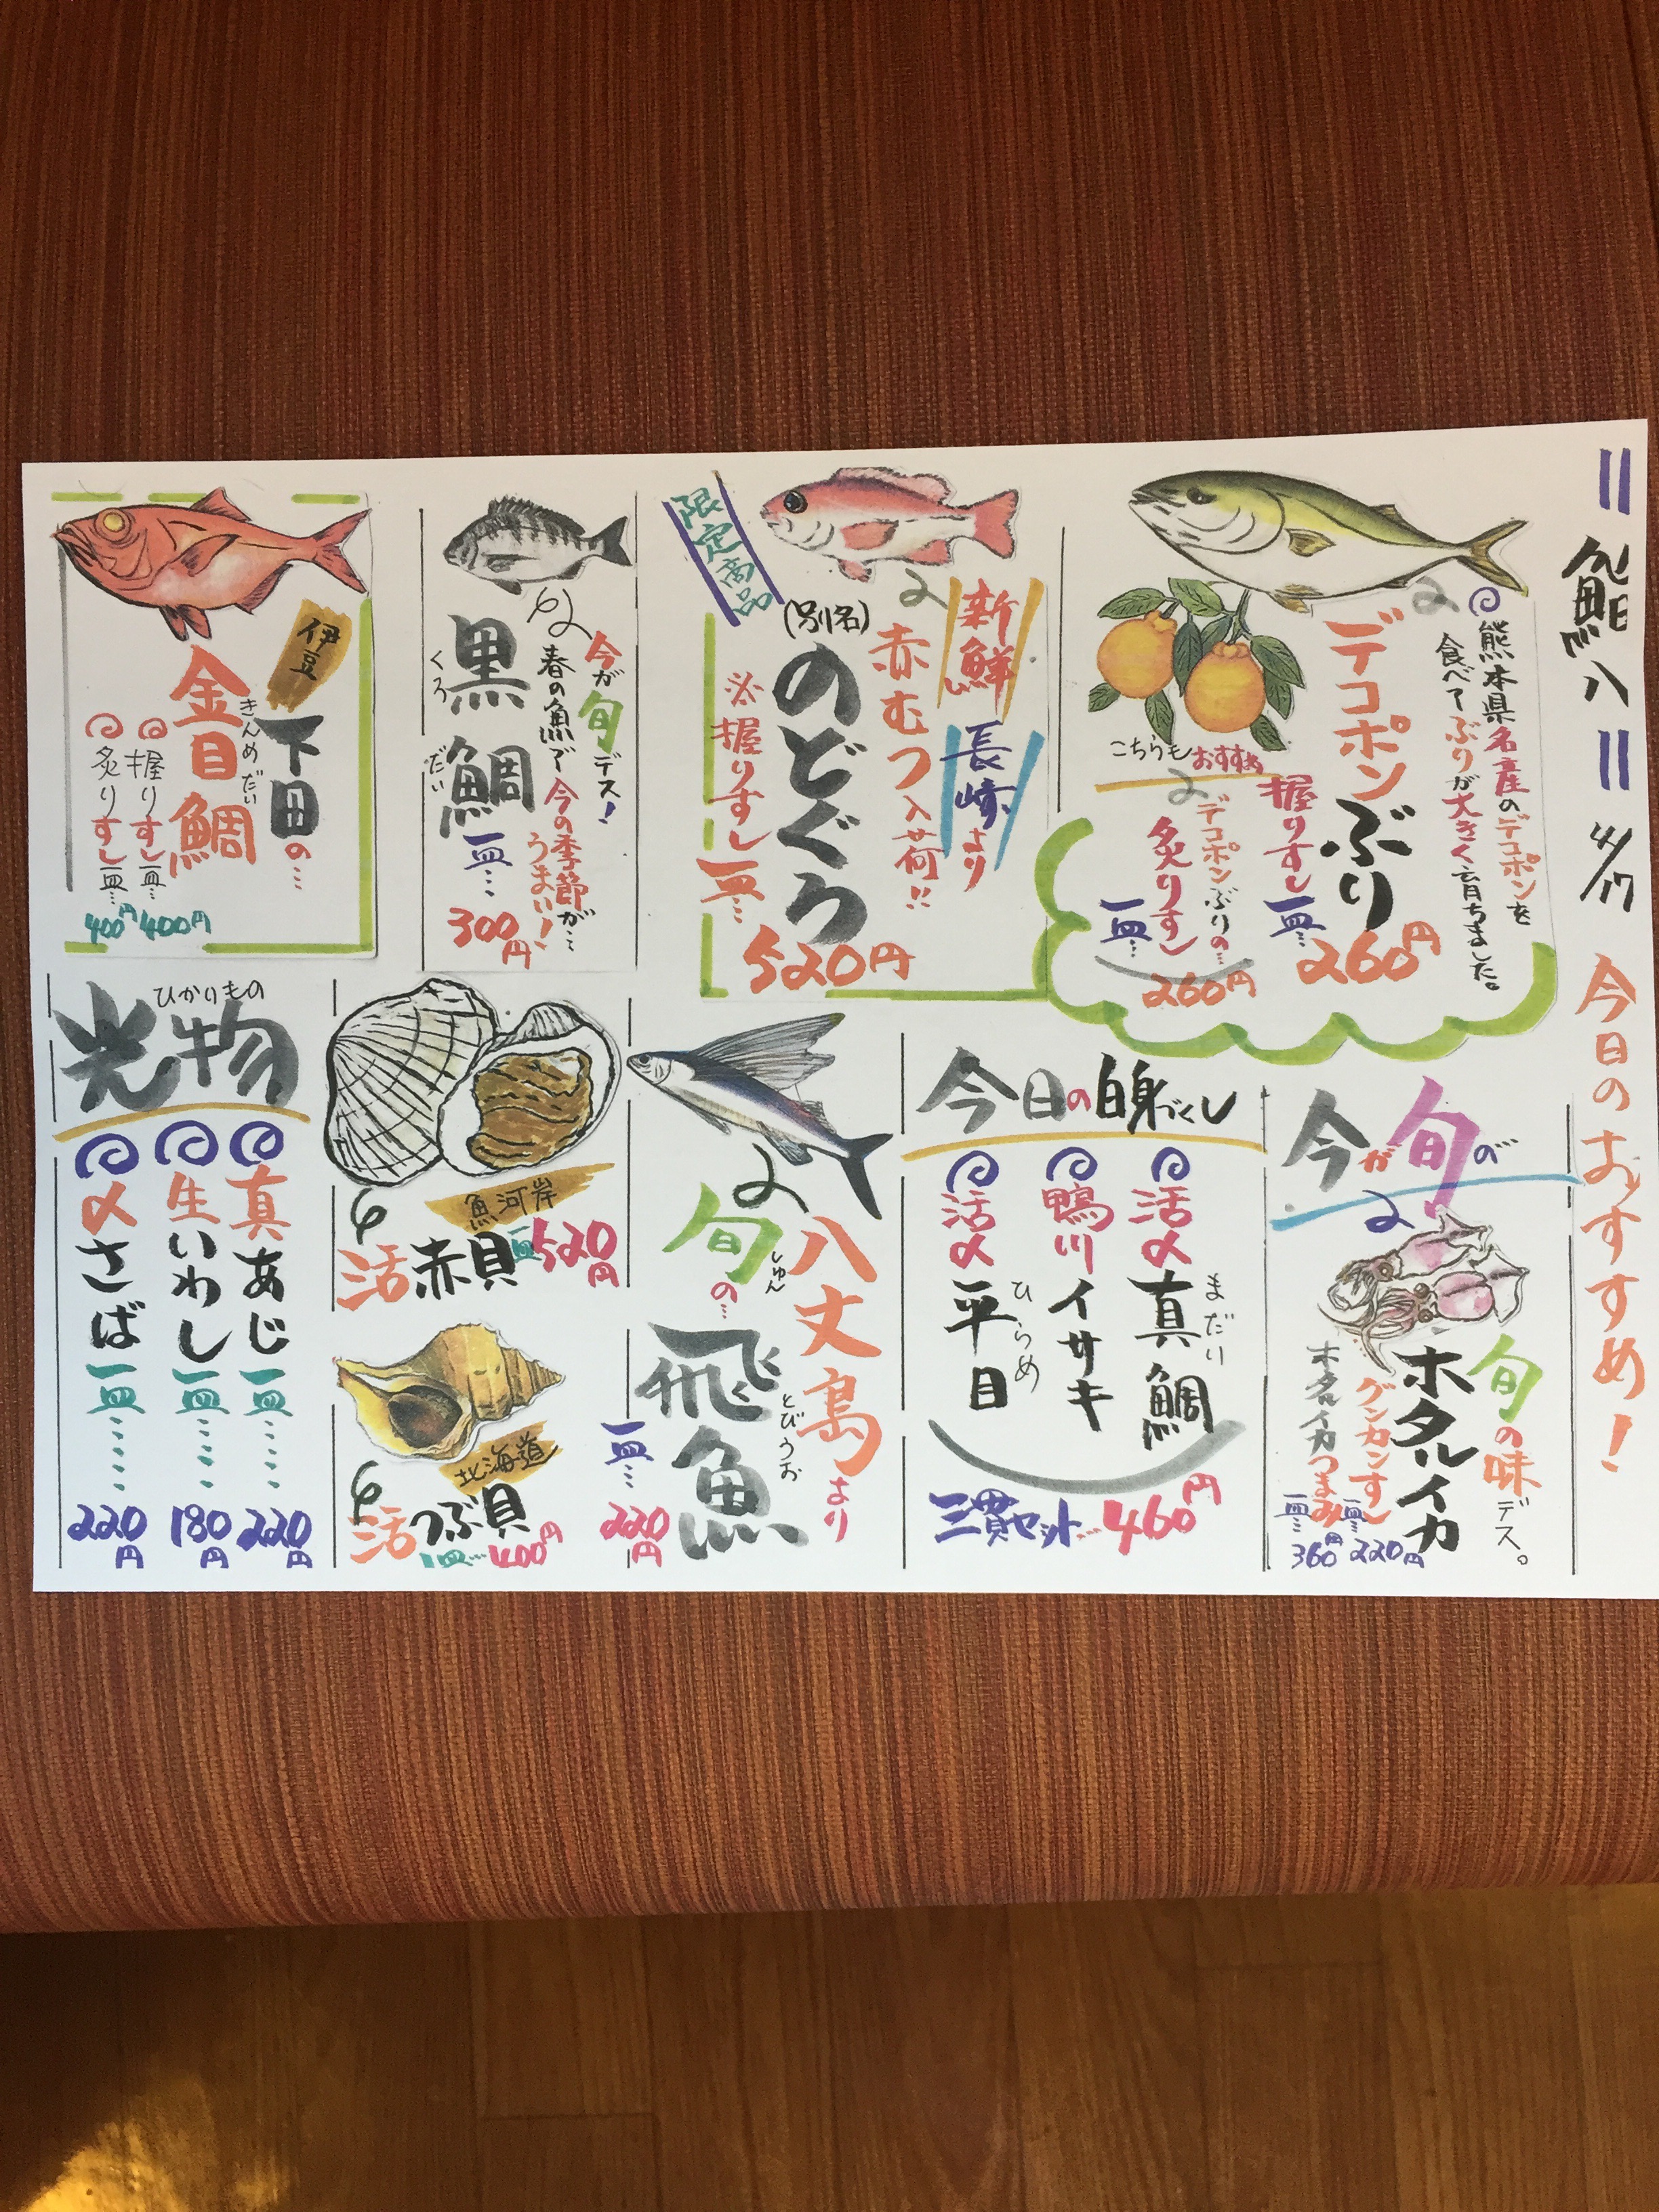 鮨八 4/17 今日のおすすめ!
熊本県名産のデコポンを
食べてぶりが大きく育ちました。
デコポンぶり
握りすし一皿…260円
こちらもおすすめ
デコポンぶりの…
炙りすし
一皿…260円
新鮮
長崎より
赤むつ入荷!!
(別名)
のどぐろ
※握りすし一皿…
520円
限定商品
今が旬デス!
春の魚で今の季節が…
うまい!
黒鯛
くろ だい
一皿…
300円
伊豆
下田の…
金目鯛
きんめだい
握りすし一皿…400円
炙りすし一皿…400円
今が旬の
旬の味デス。
ホタルイカ
グンカンすし
一皿…220円
ホタルイカつまみ
一皿…360円
今日の白身づくし
活〆真鯛
まだい
鴨川イサキ
活〆平目
ひらめ
三貫セット…460円
八丈島より
旬の…
しゅん
飛魚
とびうお
一皿…220円
魚河岸
活赤貝一皿520円
北海道
活つぶ貝
1皿…400円
光物
ひかりもの
真あじ一皿……220円
生いわし一皿……180円
〆さば一皿……220円